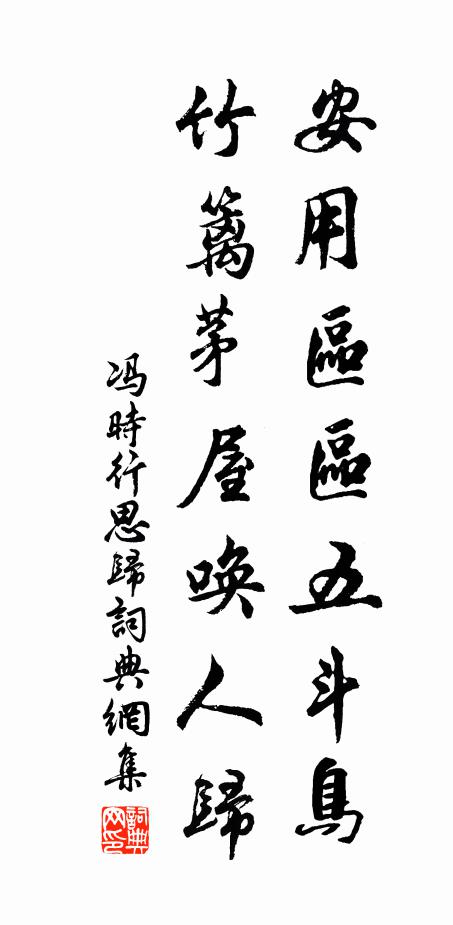 安用區區五斗為
竹籬茅屋喚人歸
冯時行思歸詞典網集
詞典网印